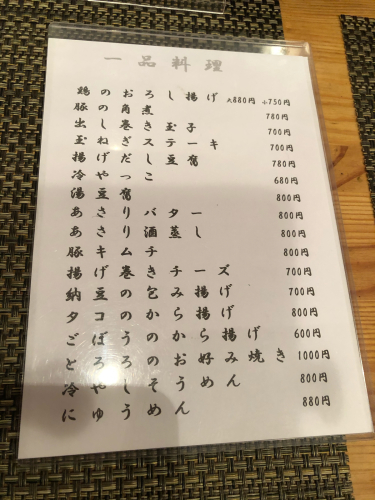 一品料理
鶏のおろし揚げ 大880円 小750円
豚の角煮 780円
出し巻き玉子 700円
玉ねぎステーキ 700円
揚げだし豆腐 780円
冷やっこ 680円
湯豆腐 800円
あさりバター 800円
あさり酒蒸し 800円
豚キムチ 800円
揚げ巻きチーズ 700円
納豆の包み揚げ 700円
タコのから揚げ 800円
ごぼうのから揚げ 600円
とろろのお好み焼き 1000円
冷やしそうめん 800円
にゅうめん 880円